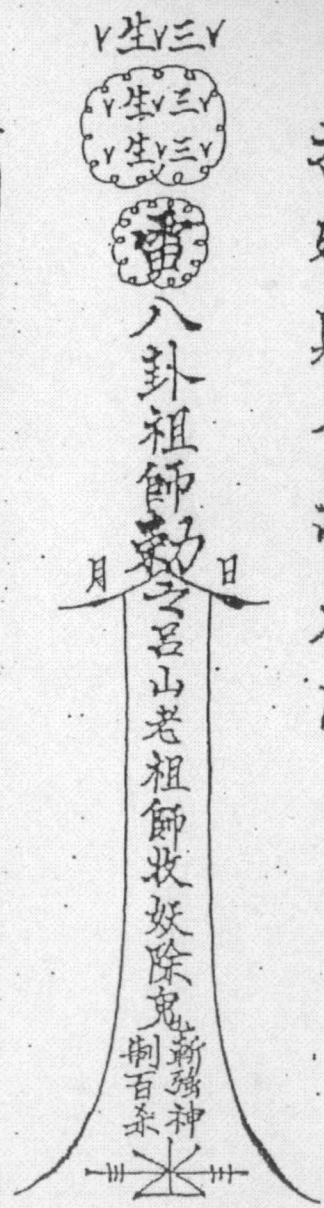 ∨生∨三∨
∨生∨三∨
∨生∨三∨
雷
八卦祖師勅
日
月
呂山老祖師收妖除鬼
斬強神
制百杀